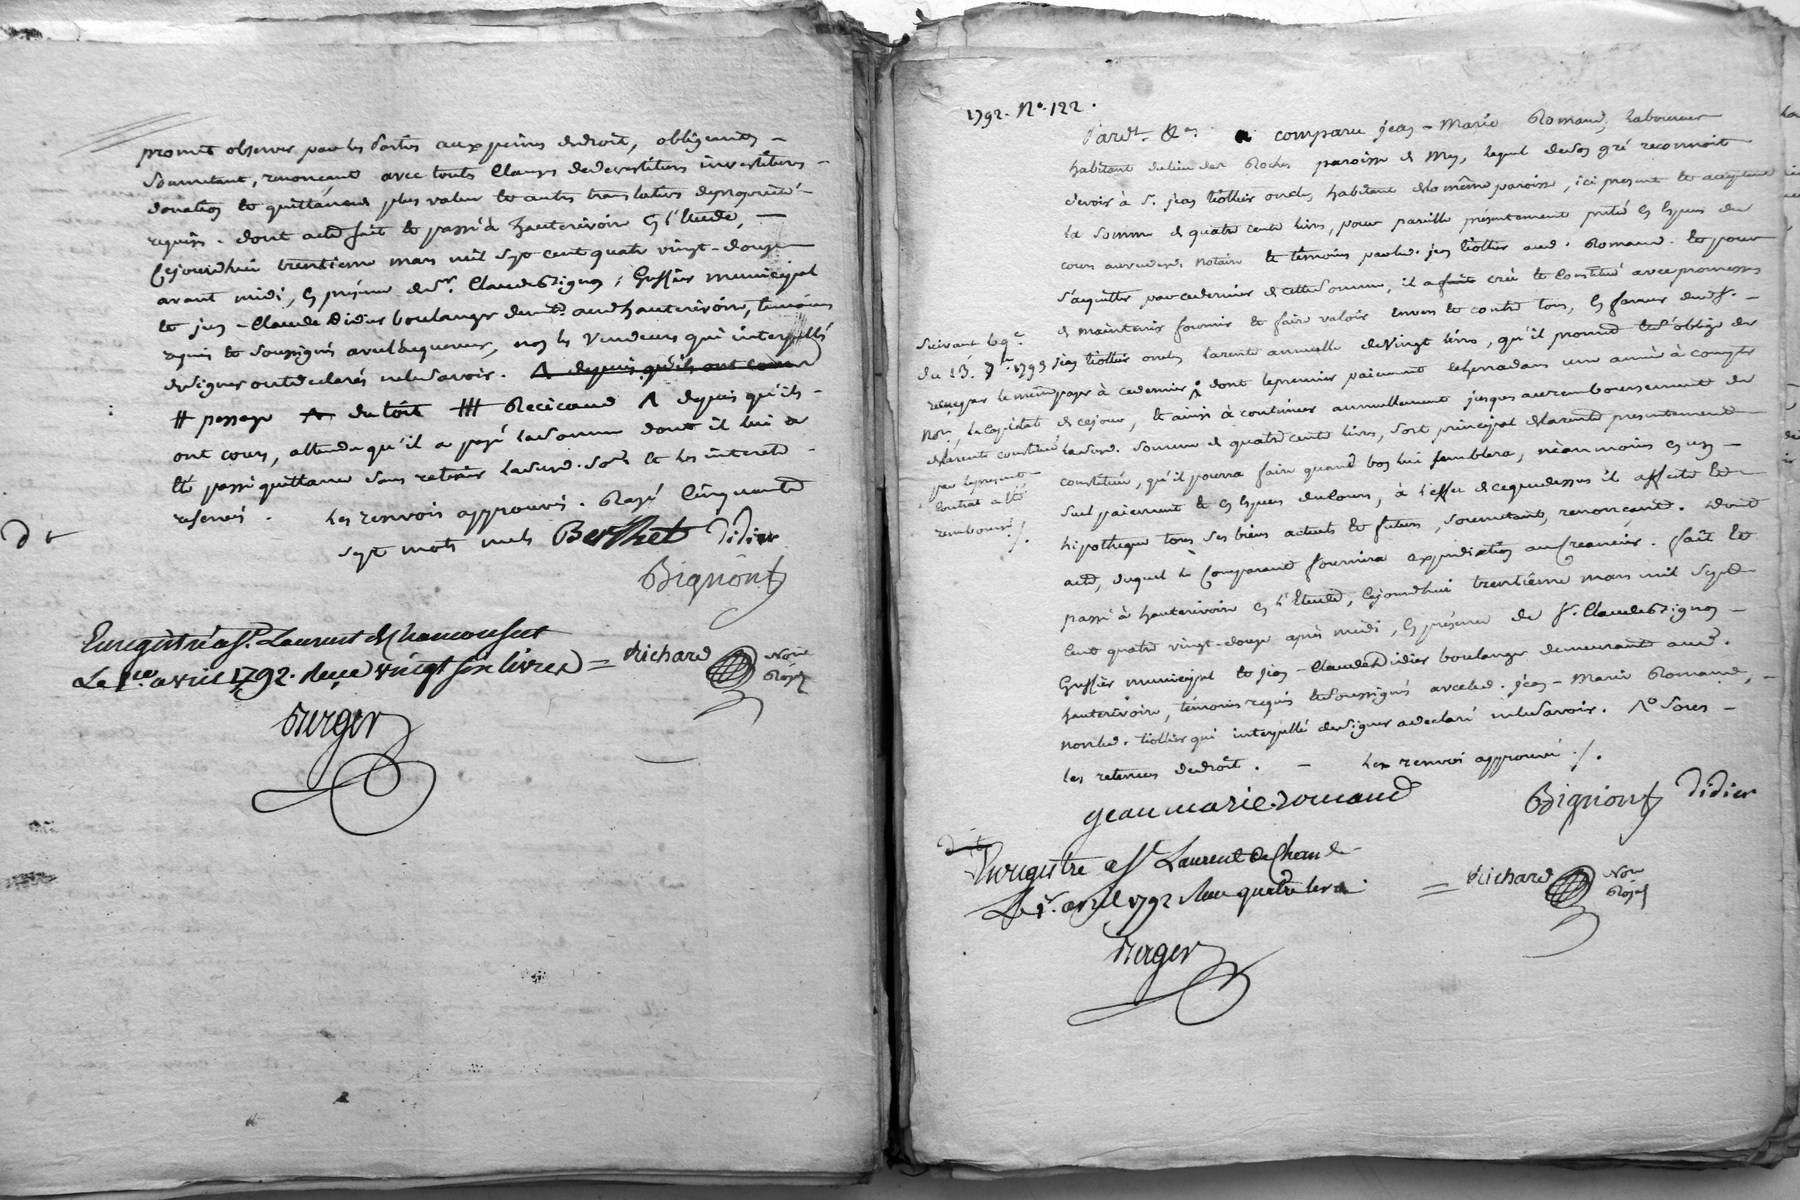 promis observer par les Parties aux peines de droit, obligeants,
soumettant, renonçant avec touts Clauzes de devestitures investitures
donation et quittances plus values et autres translatives de propriété
requises. dont acte fait et passé à hauterivoire en l'Etude,
Cejourdhui trentieme mars mil sept cent quatre vingt-douze
avant midi, en présence de sr. Claude Bignon, Greffier municipal
et jean-Claude Didier boulanger demt. audt hauterivoire, temoins
requis et soussignés avec l'acquereur, non les Vendeurs qui interpellés
de signer ont déclarés ne le savoir. A depuis qu'ils ont cours
# passage A du toit ### Recicaud A depuis qu'ils
ont cours, attendu qu'il a payé la somme dont il lui a
été passé quittance sans retenir lasusd. Soe. et les intérets
reservés. Les renvois approuvés. Rayé Cinquante
sept mots nuls Berthet Didier
Bignon
Enregistré a St. Laurent de Chamousset
Le 1er avril 1792. Reçu vingt six livres = Richard Nore Royal
Berger
1792. No. 122.
Pardt. &a. a comparu jean-Marie Romand, laboureur
habitant du lieu des Roches paroisse de Mey, lequel de son gré reconnoit
devoir à S. jean tiollier oncle, habitant de la même paroisse, ici présent et acceptant
la somme de quatre cents livres, pour pareille présentement prêté en Espèces du
cours au vu desd. Notaire et témoins par led. jean tiollier aud. Romand. Et pour
s'acquitter par ce dernier de cette somme, il a fait créé et Constitué avec promesses
de maintenir fournir et faire valoir envers et contre tous, en faveur dud. S.
jean tiollier oncle, la rente annuelle de Vingt livres, qu'il promet et s'oblige de
payer à ce dernier A dont le premier paiement echerra dans une année à compter
de ce jour, et ainsi à continuer annuellement jusques au remboursement de
lasusd. somme de quatre cents livres, sort principal de la rente présentement
constituée, qu'il pourra faire quand bon lui semblera, néanmoins en un
seul paiement et en Espèces du Cours, à l'effet de ce que dessus il affecte et
hipotheque tous ses biens actuels et futurs, soumettant, renonçant. Dont
acte, duquel le Comparant fournira expédition au Créancier. fait et
passé à hauterivoire en l'Etude, Cejourdhui trentième mars mil sept
cent quatre vingt-douze après midi, en présence de S. Claude Bignon
Greffier municipal et jean-Claude Didier boulanger demeurant aud.
hauterivoire, témoins requis et soussignés avec led. jean-Marie Romand,
non led. tiollier qui interpellé de signer a declaré ne le savoir. A sous
les retenues de droit. Les renvoi approuvé ./.
Suivant la qce.
du 13. 7bre. 1793
reçue par le même
Nore., le Capital
de la rente constituée
par le present
Contrat a été
remboursé ./.
gean marie romand Bignon Didier
Enregistre a St Laurent de Cham
Le 1r. avril 1792 Reçu quatre livres = Richard Nore Royal
Berger